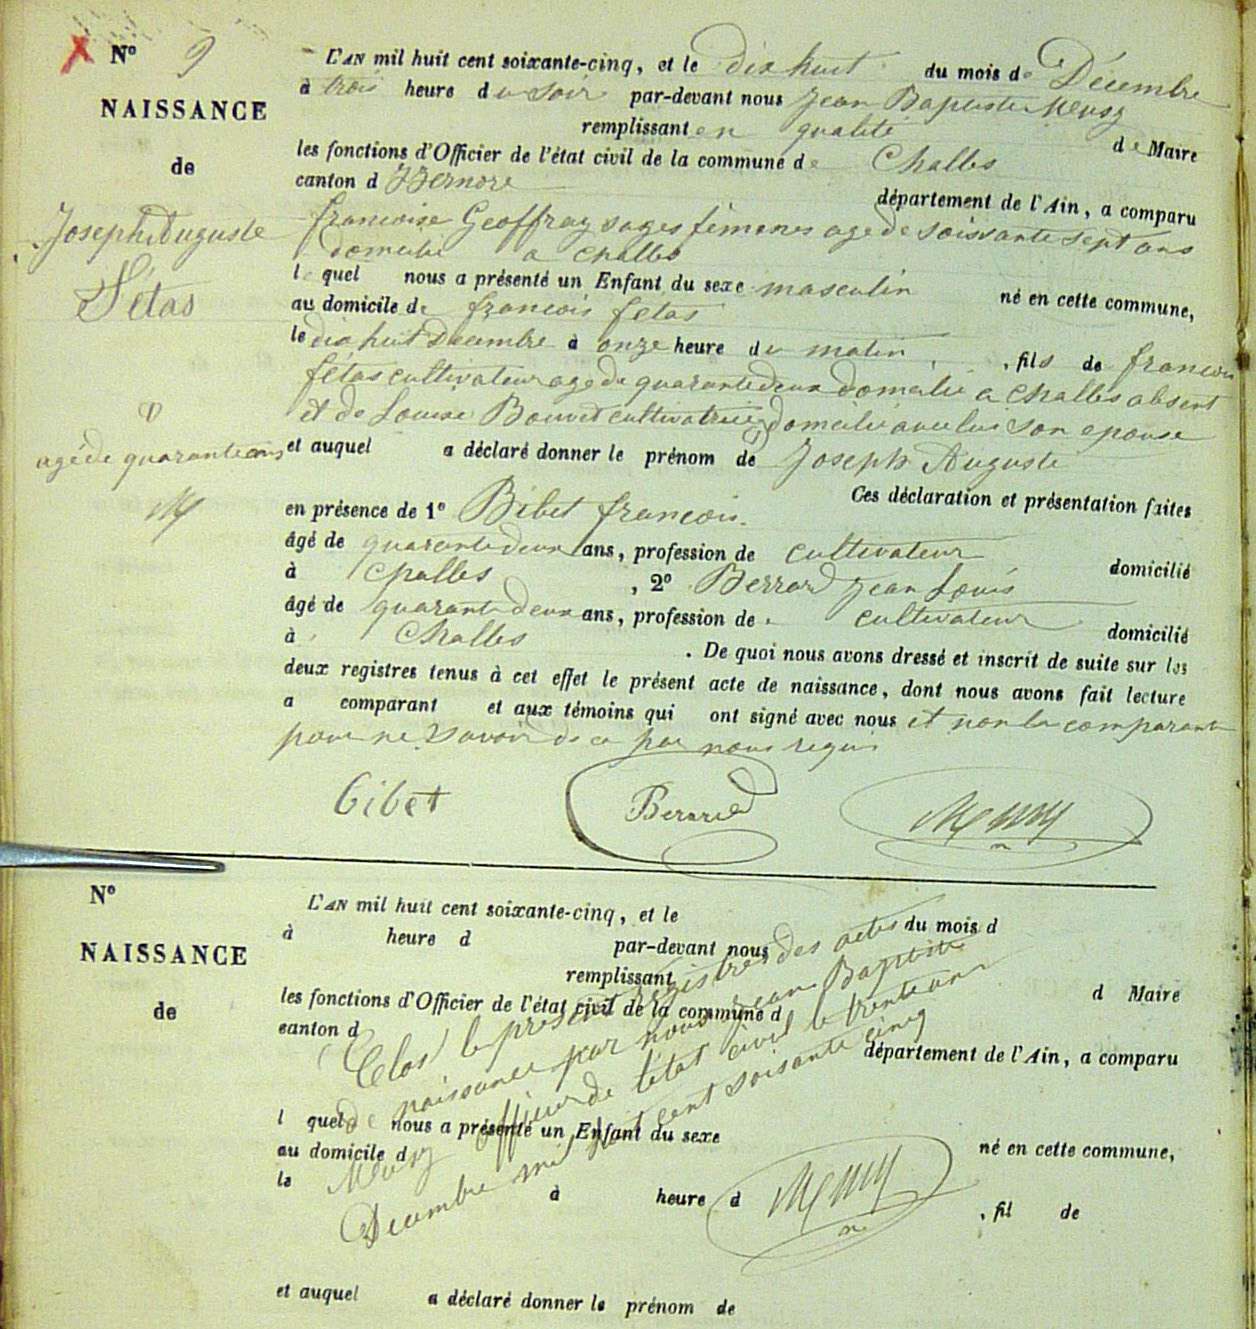 N° 9
NAISSANCE
de
Joseph Auguste
Fétas
agé de quarante ans
M
L'AN mil huit cent soixante-cinq, et le dix huit du mois de Décembre
à trois heure du soir par-devant nous Jean Baptiste
remplissant en qualité de Maire
les fonctions d'Officier de l'état civil de la commune de Challes
canton d Izernore département de l'Ain, a comparu
francoise Geoffray sages femmes age de soissante sept ans
domicilié a Challes
le quel nous a présenté un Enfant du sexe masculin né en cette commune,
au domicile de francois fetas
le dix huit Decembre à onze heure du matin, fils de francois
fétas cultivateur age de quarante deux domicilié a Challes absent
et de Louise Bouvet cultivatrice domicilié avec lui son epouse
et auquel a déclaré donner le prénom de Joseph Auguste
Ces déclaration et présentation faites
en présence de 1° Bibet francois
âgé de quarante deux ans, profession de cultivateur domicilié
à Challes, 2° Berrard jean Louis
âgé de quarante deux ans, profession de cultivateur domicilié
à Challes. De quoi nous avons dressé et inscrit de suite sur les
deux registres tenus à cet effet le présent acte de naissance, dont nous avons fait lecture
a comparant et aux témoins qui ont signé avec nous et non la comparante
pour ne savoir de ce par nous requis
Bibet Berrard
N°
NAISSANCE
de
L'AN mil huit cent soixante-cinq, et le du mois d
à heure d par-devant nous
remplissant d Maire
les fonctions d'Officier de l'état civil de la commune d
canton d département de l'Ain, a comparu
l quel nous a présenté un Enfant du sexe né en cette commune,
au domicile d
le à heure d, fil de
et auquel a déclaré donner le prénom de
Clos le present registres des actes
de naissance par nous Jean Baptiste
officier de l'état civil le trente un
Decembre mil huit cent soisante cinq